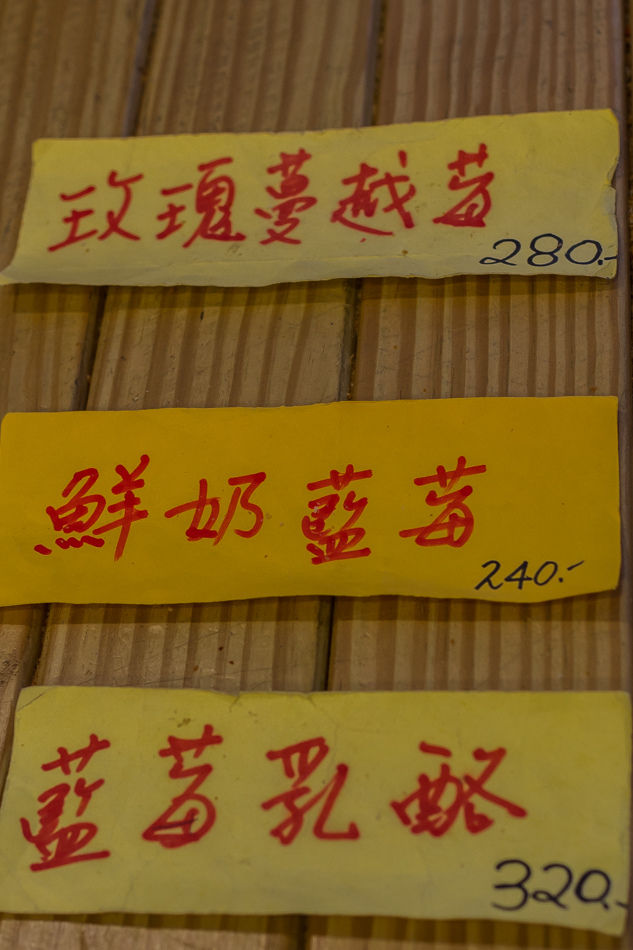 玫瑰蔓越莓
280.-
鮮奶藍莓
240.-
藍莓乳酪
320.-